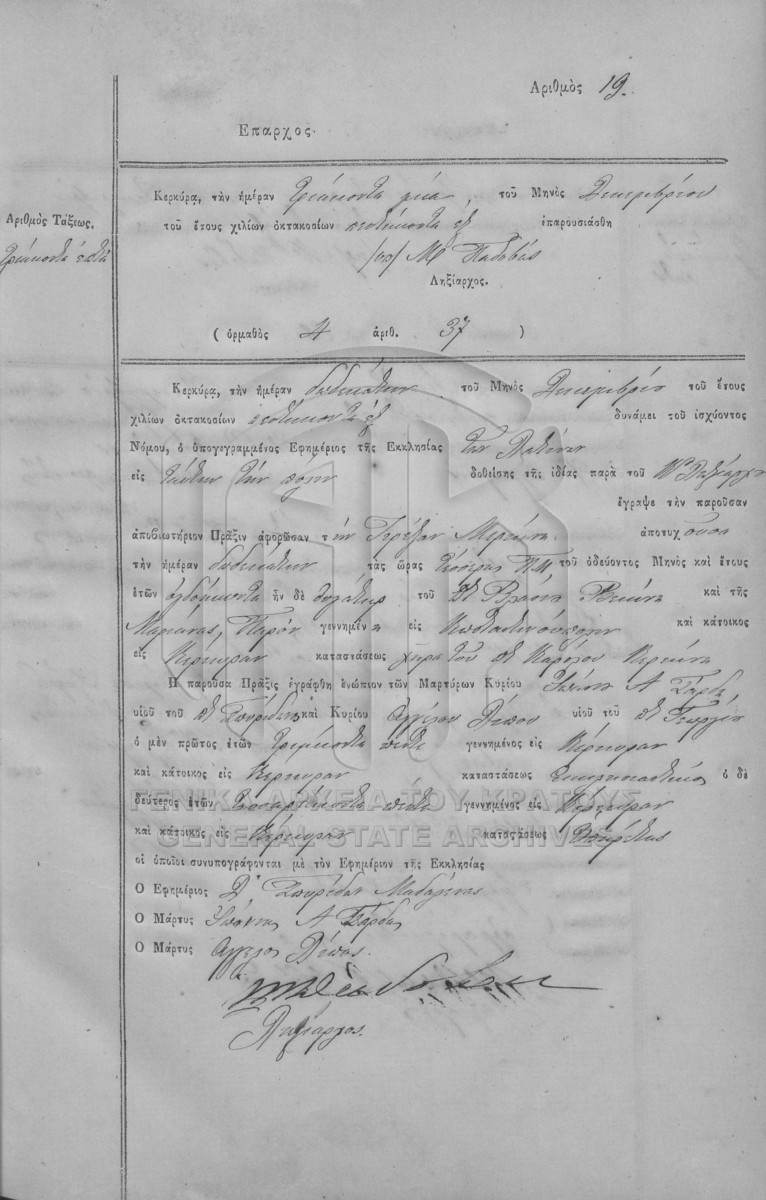 Αριθμὸς 19.
Επαρχος.
Αριθμὸς Τάξεως.
τριάκοντα ἑπτὰ
Κερκύρᾳ, τὴν ἡμέραν τριάκοντα μίαν, τοῦ Μηνὸς Δεκεμβρίου
τοῦ ἔτους χιλίων ὀκτακοσίων πεντήκοντα ἕξ ἐπαρουσιάσθη
Ληξίαρχος.
( ὁρμαθὸς 4 ἀριθ. 37 )
Κερκύρᾳ, τὴν ἡμέραν δωδεκάτην τοῦ Μηνὸς Δεκεμβρίου τοῦ ἔτους
χιλίων ὀκτακοσίων πεντήκοντα ἕξ δυνάμει τοῦ ἰσχύοντος
Νόμου, ὁ ὑπογεγραμμένος Εφημέριος τῆς Εκκλησίας τῶν Λατίνων
εἰς ταύτην τὴν πόλιν δοθείσης τῆς ἰδέας παρὰ τοῦ Ληξιάρχου
ἔγραψε τὴν παροῦσαν
ἀποβιωτήριον Πρᾶξιν ἀφορῶσαν τὴν ἀποτυχοῦσα
τὴν ἡμέραν δωδεκάτην τὰς ὥρας τέσσερας Π.Μ τοῦ ὁδεύοντος Μηνὸς καὶ ἔτους
ἐτῶν ὀγδοήκοντα ἦν δὲ θυγάτηρ τοῦ καὶ τῆς
Μαριάνας, γεννημένη εἰς Κωνσταντινούπολιν καὶ κάτοικος
εἰς Κέρκυραν καταστάσεως χήρα τοῦ Καρόλου
Η παροῦσα Πρᾶξις ἐγράφθη ἐνώπιον τῶν Μαρτύρων Κυρίου Ἰωάννου Α
υἱοῦ τοῦ Σπυρίδωνος καὶ Κυρίου Αγγέλου υἱοῦ τοῦ Γεωργίου
ὁ μὲν πρῶτος ἐτῶν τριάκοντα πέντε γεννημένος εἰς Κέρκυραν
καὶ κάτοικος εἰς Κέρκυραν καταστάσεως ὁ δὲ
δεύτερος ἐτῶν τεσσαράκοντα πέντε γεννημένος εἰς Κέρκυραν
καὶ κάτοικος εἰς Κέρκυραν καταστάσεως Ὑπηρέτης
οἱ ὁποῖοι συνυπογράφονται μὲ τὸν Εφημέριον τῆς Εκκλησίας
Ο Εφημέριος Σπυρίδων
Ο Μάρτυς Ἰωάννης Α
Ο Μάρτυς Αγγελος
Ληξίαρχος.
ΓΕΝΙΚΑ ΑΡΧΕΙΑ ΤΟΥ ΚΡΑΤΟΥΣ
GENERAL STATE ARCHIVES